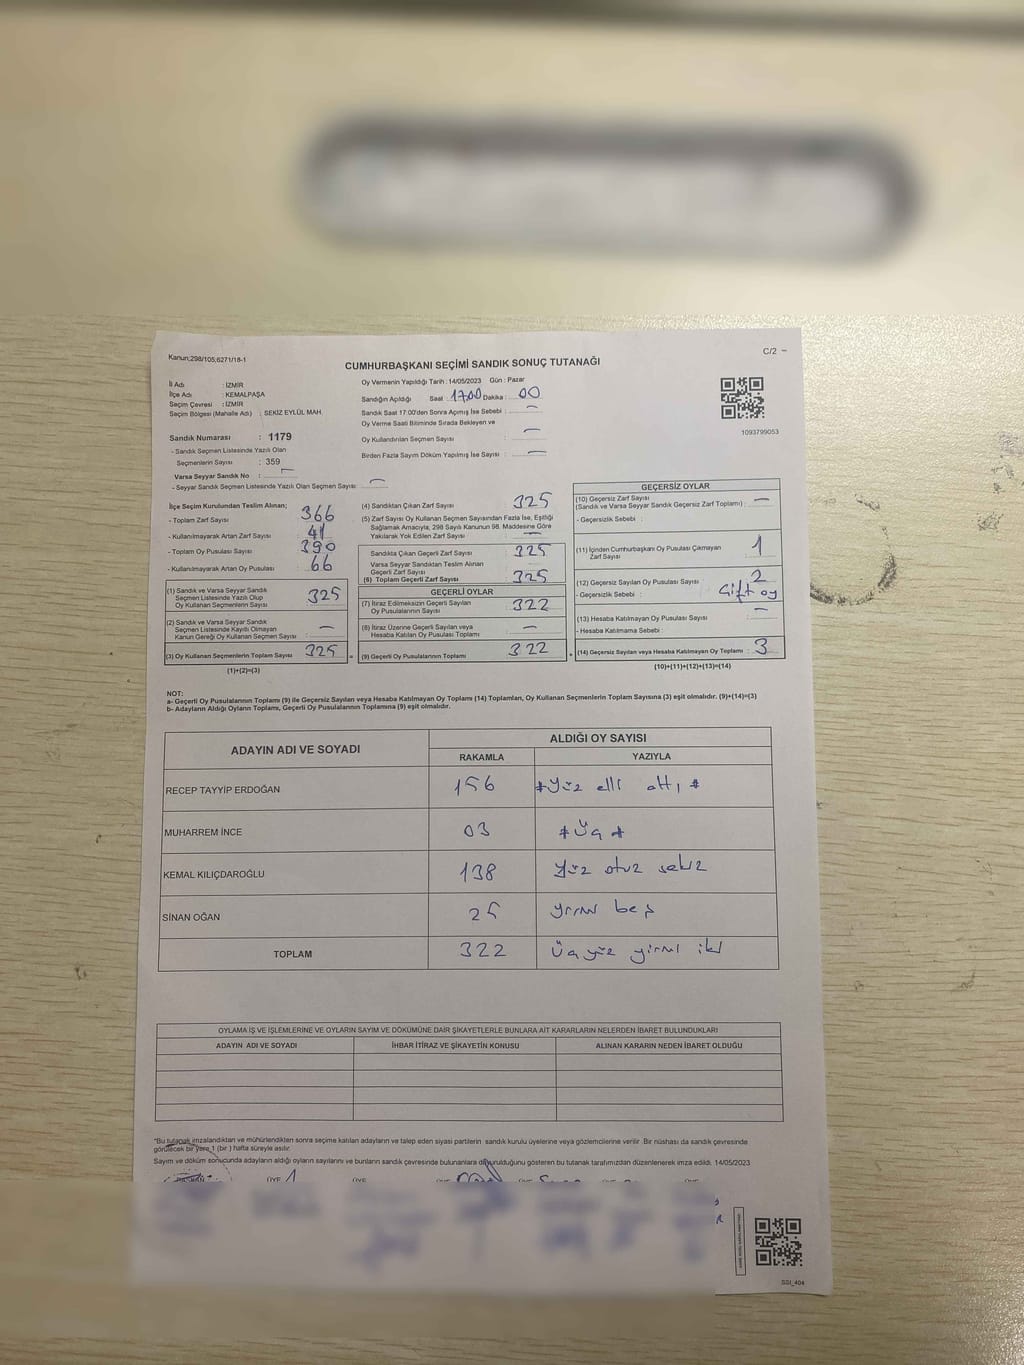 Kanun;298/105,6271/18-1
C/2 –
CUMHURBAŞKANI SEÇİMİ SANDIK SONUÇ TUTANAĞI
İl Adı : İZMİR
İlçe Adı : KEMALPAŞA
Seçim Çevresi : İZMİR
Seçim Bölgesi (Mahalle Adı) : SEKİZ EYLÜL MAH.
Sandık Numarası : 1179
- Sandık Seçmen Listesinde Yazılı Olan
Seçmenlerin Sayısı : 359
Varsa Seyyar Sandık No : –
- Seyyar Sandık Seçmen Listesinde Yazılı Olan Seçmen Sayısı : –
Oy Vermenin Yapıldığı Tarih : 14/05/2023 Gün : Pazar
Sandığın Açıldığı Saat : 17.00 Dakika : 00
Sandık Saat 17:00'den Sonra Açımış İse Sebebi : –
Oy Verme Saati Bitiminde Sırada Bekleyen ve
Oy Kullandırılan Seçmen Sayısı : –
Birden Fazla Sayım Döküm Yapılmış İse Sayısı : –
1093799053
İlçe Seçim Kurulundan Teslim Alınan;
- Toplam Zarf Sayısı : 366
- Kullanılmayarak Artan Zarf Sayısı : 41
- Toplam Oy Pusulası Sayısı : 390
- Kullanılmayarak Artan Oy Pusulası : 66
(1) Sandık ve Varsa Seyyar Sandık
Seçmen Listesinde Yazılı Olup
Oy Kullanan Seçmenlerin Sayısı : 325
(2) Sandık ve Varsa Seyyar Sandık
Seçmen Listesinde Kayıtlı Olmayan
Kanun Gereği Oy Kullanan Seçmen Sayısı : –
(3) Oy Kullanan Seçmenlerin Toplam Sayısı : 325
(1)+(2)=(3)
(4) Sandıktan Çıkan Zarf Sayısı : 325
(5) Zarf Sayısı Oy Kullanan Seçmen Sayısından Fazla İse, Eşitliği
Sağlamak Amacıyla; 298 Sayılı Kanunun 98. Maddesine Göre
Yakılarak Yok Edilen Zarf Sayısı : –
Sandıkta Çıkan Geçerli Zarf Sayısı : 325
Varsa Seyyar Sandıktan Teslim Alınan
Geçerli Zarf Sayısı :
(6) Toplam Geçerli Zarf Sayısı : 325
GEÇERLİ OYLAR
(7) İtiraz Edilmeksizin Geçerli Sayılan
Oy Pusulalarının Sayısı : 322
(8) İtiraz Üzerine Geçerli Sayılan veya
Hesaba Katılan Oy Pusulası Toplamı : –
= (9) Geçerli Oy Pusulalarının Toplamı : 322
GEÇERSİZ OYLAR
(10) Geçersiz Zarf Sayısı
(Sandık ve Varsa Seyyar Sandık Geçersiz Zarf Toplamı) : –
- Geçersizlik Sebebi :
(11) İçinden Cumhurbaşkanı Oy Pusulası Çıkmayan
Zarf Sayısı : 1
(12) Geçersiz Sayılan Oy Pusulası Sayısı : 2
- Geçersizlik Sebebi : Çift oy
(13) Hesaba Katılmayan Oy Pusulası Sayısı : –
- Hesaba Katılmama Sebebi :
+ (14) Geçersiz Sayılan veya Hesaba Katılmayan Oy Toplamı : 3
(10)+(11)+(12)+(13)=(14)
NOT:
a- Geçerli Oy Pusulalarının Toplamı (9) ile Geçersiz Sayılan veya Hesaba Katılmayan Oy Toplamı (14) Toplamları, Oy Kullanan Seçmenlerin Toplam Sayısına (3) eşit olmalıdır. (9)+(14)=(3)
b- Adayların Aldığı Oyların Toplamı, Geçerli Oy Pusulalarının Toplamına (9) eşit olmalıdır.
ADAYIN ADI VE SOYADI ALDIĞI OY SAYISI
RAKAMLA YAZIYLA
RECEP TAYYİP ERDOĞAN 156 #Yüz elli altı #
MUHARREM İNCE 03 # Üç #
KEMAL KILIÇDAROĞLU 138 Yüz otuz sekiz
SİNAN OĞAN 25 yirmi beş
TOPLAM 322 Üçyüz yirmi iki
OYLAMA İŞ VE İŞLEMLERİNE VE OYLARIN SAYIM VE DÖKÜMÜNE DAİR ŞİKAYETLERLE BUNLARA AİT KARARLARIN NELERDEN İBARET BULUNDUKLARI
ADAYIN ADI VE SOYADI İHBAR İTİRAZ VE ŞİKAYETİN KONUSU ALINAN KARARIN NEDEN İBARET OLDUĞU
*Bu tutanak imzalandıktan ve mühürlendikten sonra seçime katılan adayların ve talep eden siyasi partilerin sandık kurulu üyelerine veya gözlemcilerine verilir. Bir nüshası da sandık çevresinde
görülecek bir yere 1 (bir ) hafta süreyle asılır.
Sayım ve döküm sonucunda adayların aldığı oyların sayılarını ve bunların sandık çevresinde bulunanlara duyurulduğunu gösteren bu tutanak tarafımızdan düzenlenerek imza edildi. 14/05/2023
BAŞKAN ÜYE ÜYE
SSI_404